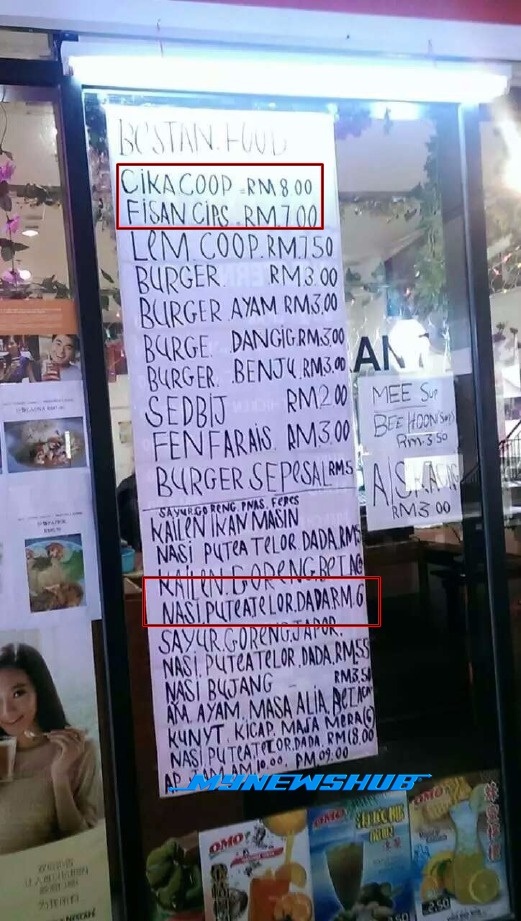 BESTAN. FOOD
CIKACOOP =RM 8.00
FISAN CIPS. =RM.7.00
LEM. COOP. RM.750
BURGER. RM3.00
BURGER AYAM. RM3.00
BURGE. DANGIG.RM3.00
BURGER. BENJU. RM3.00
SEDBIJ RM2.00
FENFARAIS. RM3.00
BURGER SEPESAL RM5
SAYUR.GORENG.PNAS.FERES
KAILEN IKAN MASIN
NASI PUTEA TELOR DADA.RM5
KAILEN.GORENG BETAG
NASI.PUTEATELOR.DADA.RM.6
SAYUR.GORENG.JAPOR.
NASI.PUTEATELOR.DADA.RM55
NASI BUJANG RM3.50
AM. AYAM. MASA ALIA.
KUNYT. KICAP. MASA MERA(G)
NASI PUTEATELOR.DADA. RM18.00
AM 10.00. PM 09.00
MYNEWSHUB
MEE SUP
BEEHOON SUP
RM3.50
RM3.00
AN
OMO
OMO
OMO